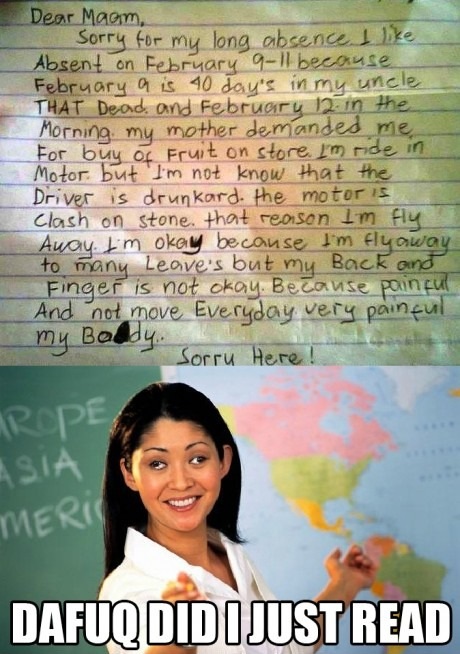 Dear Maam,
Sorry for my long absence I like
Absent on February 9-11 because
February 9 is 40 day's in my uncle
THAT Dead. and February 12 in the
Morning. my mother demanded me
For buy of Fruit on store. I'm ride in
Motor. but I'm not know that the
Driver is drunkard. the motor is
Clash on stone. that reason I'm fly
Away. I'm okay because I'm fly away
to many Leave's but my Back and
Finger is not okay. Because painful
And not move Everyday very painful
my Body..
Sorry Here!
ROPE
ASIA
MERI
DAFUQ DID I JUST READ